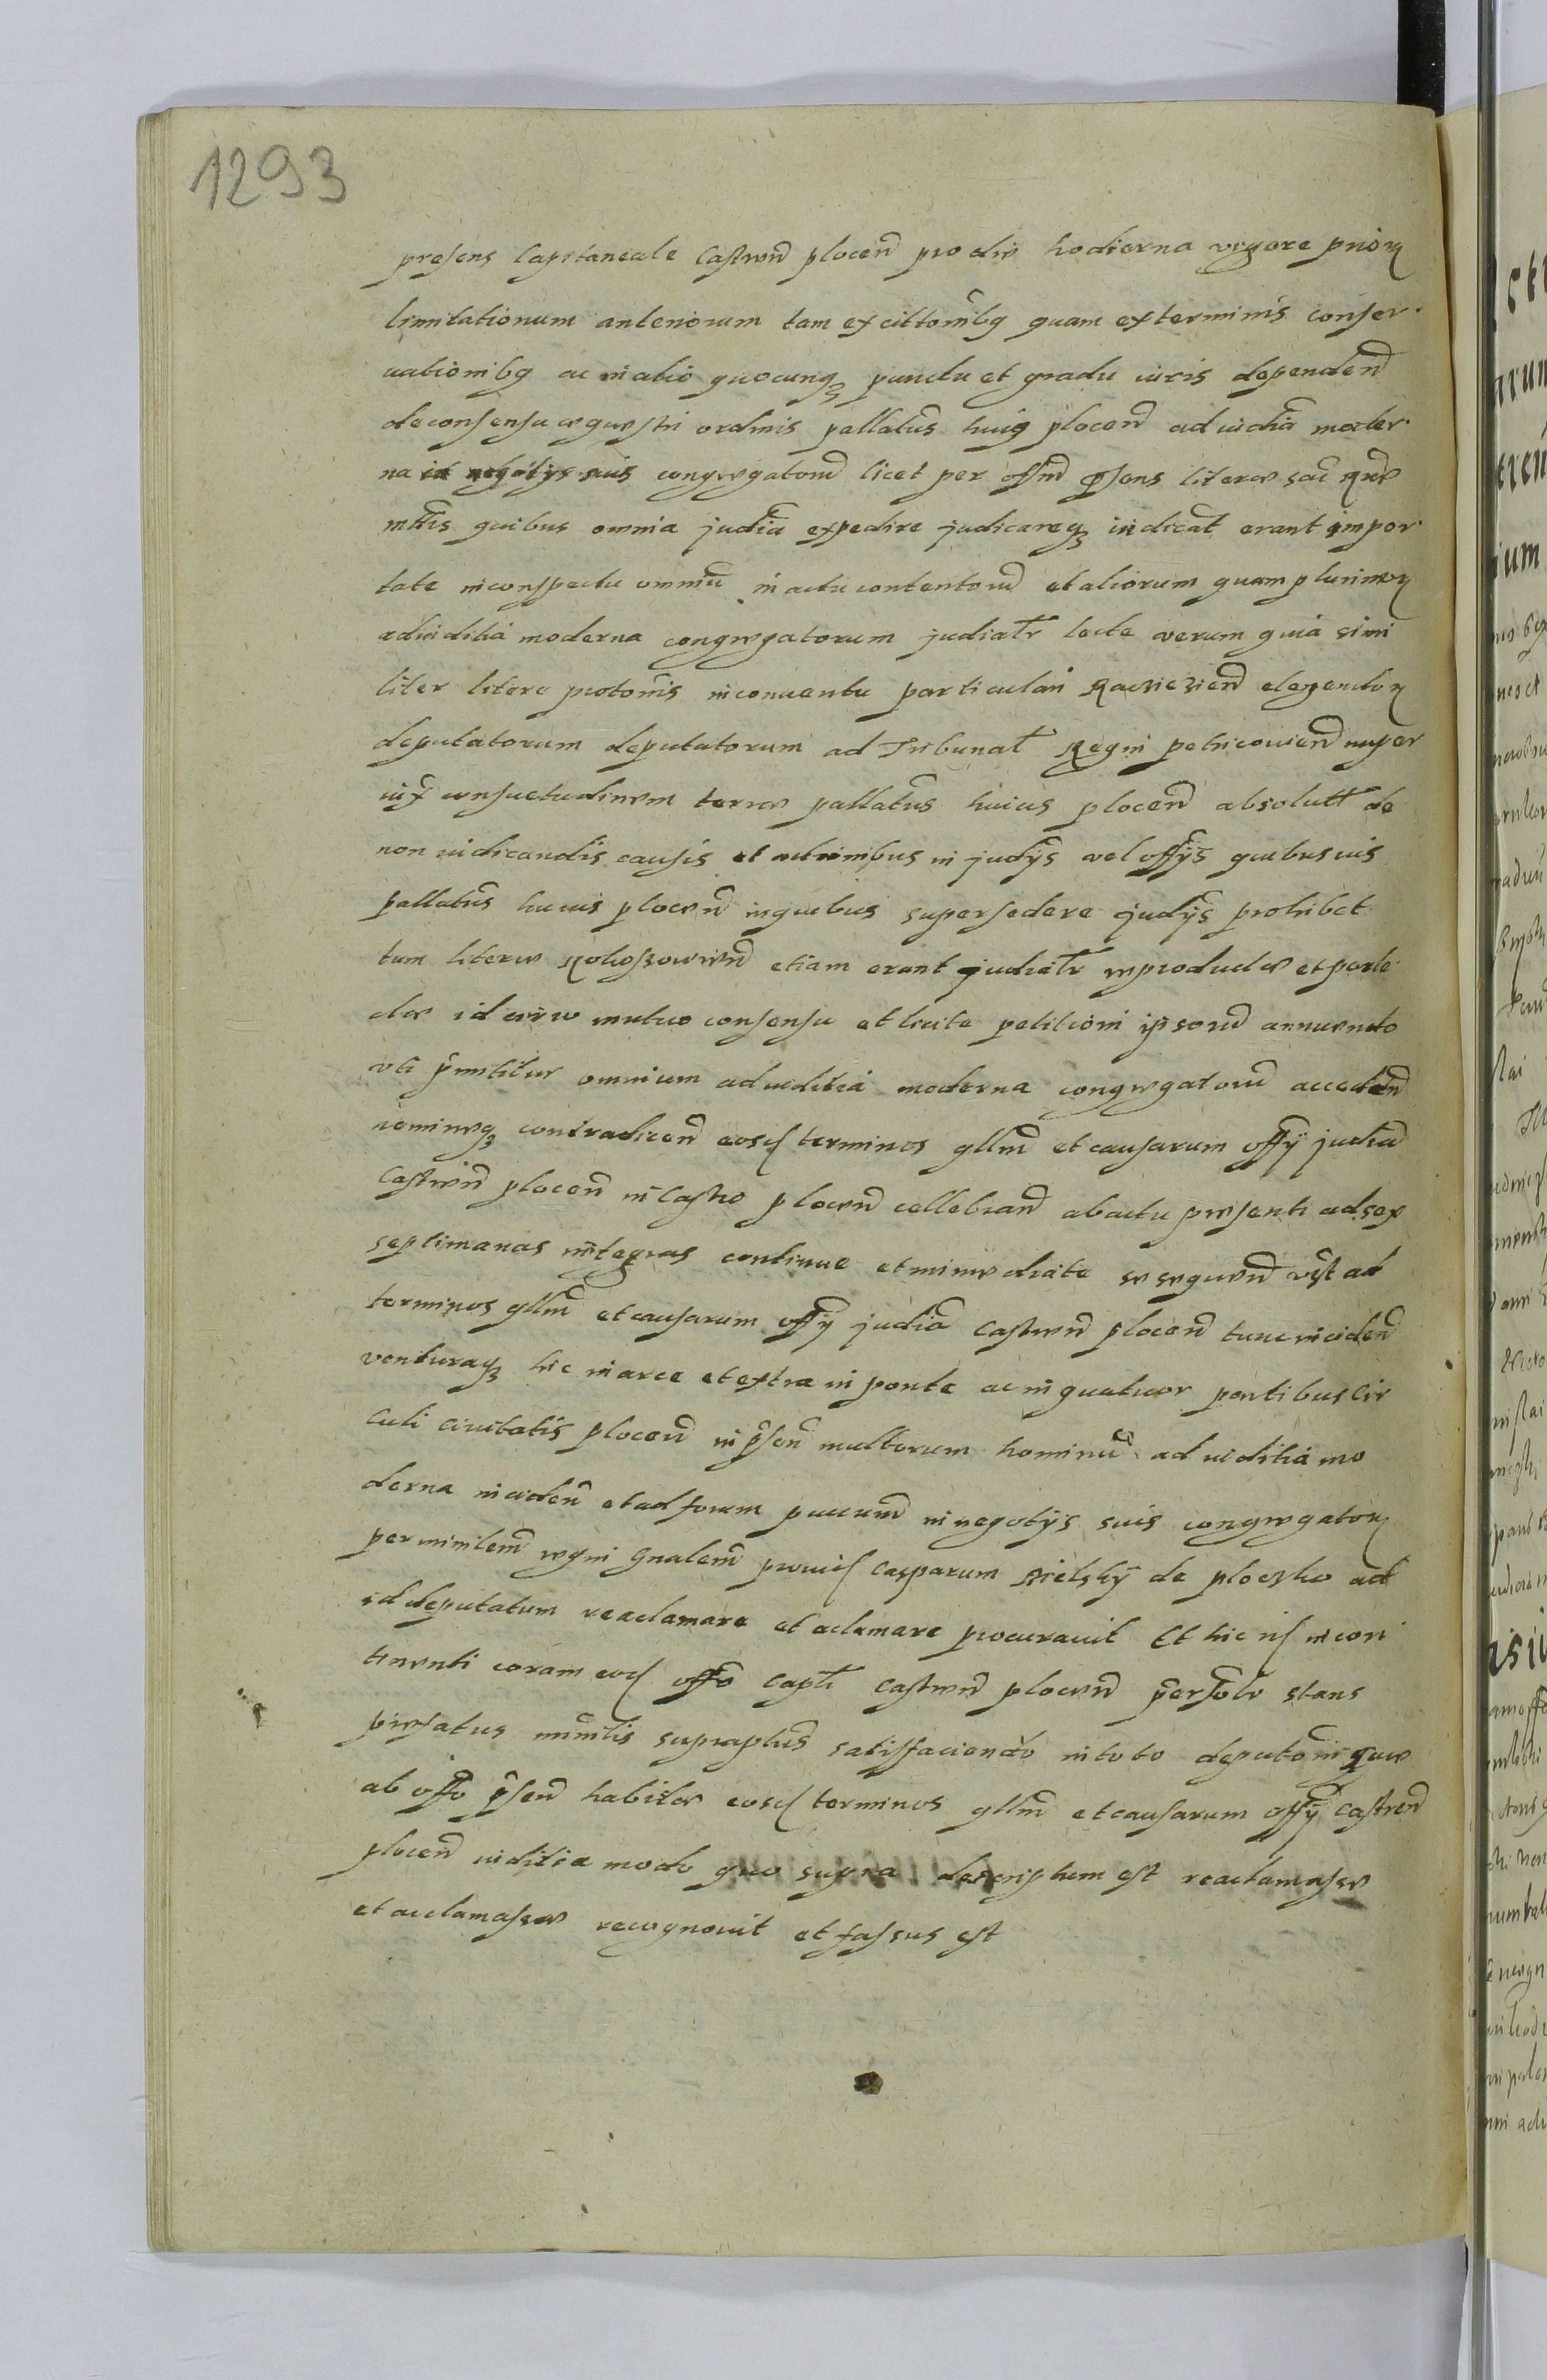 1293
presens Capitaneale Castren̄ plocen̄ pro die hodierna vigore prior̄
limitationum anteriorum tam ex cittōnibꝰ quam ex terminis conser
uationibꝰ ac in alio quocunqꝫ punctu et gradu iuris dependen̄
de consensu equestri ordinis pallatūs huiꝰ plocen̄ ad iudicīa moder
na in negotijs suis congregatorū licet per offm̄ p̄sens literæ sac̄ Regiæ
mttis quibus omnia judicīa expedire judicareqꝫ indicat̄ erant impor
tate in conspectu omniū in actu contentorū et aliorum quam plurimor̄
ad iuditia moderna congregatorum judialr̄ lecte verum quia simi
liter litere protōnis in conuentu particulari Raciezien̄ eligendor̄
deputatorum deputatorum ad Tribunal̄ Regni petricouien̄ nuper
iux̄ consuetudinem terræ pallatūs huius plocen̄ absolutt̄ de
non iudicandis causis et actionibus in judijs vel offijs quibusuis
pallatūs huius plocen̄ in quibus supersedere judijs prohibet
tum literæ Rokoszowien̄ etiam erant judialr̄ reproductæ et perle
ctæ ideirco mutuo consensu et licite petitioni ipsorū annuendo
vti p̄mittitur omnium ad iuditia moderna congregatorū acceden̄
nemineqꝫ contradicen̄ eosd terminos gllm̄ et causarum offij judicīa
Castren̄ plocen̄ in Castro plocen̄ cellebran̄ ab actu presenti ad sex
septimanas integras continue et immediate se sequen̄ vs̄t ad
terminos gllm̄ et causarum offij judicīa Castren̄ plocen̄ tunc inciden̄
venturaqꝫ hic in arce et extra in ponte ac in quatuor partibus Cir
culi ciuitatis plocen̄ in p̄sen̄ multorum hominū ad iuditia mo
derna inciden̄ et ad forum in negotijs suis congregator̄
per ministem̄ regni Gnalem̄ prouid Casparum Bielskÿ de ploczko ad
id deputatum reaclamare et aclamare procurauit Et hic id incon
tinenti coram eod offo Capl̄i Castren̄ plocen̄ personlr̄ stans
prefatus ministl̄is supraplūs satisfaciendo in toto deputōni quæ
ab offo p̄sen̄ habitæ eosd terminos gllm̄ et causarum offij Castren̄
plocen̄ iuditia modo quo supra descriptum est reaclamasse
et acclamasse recognouit et fassus est